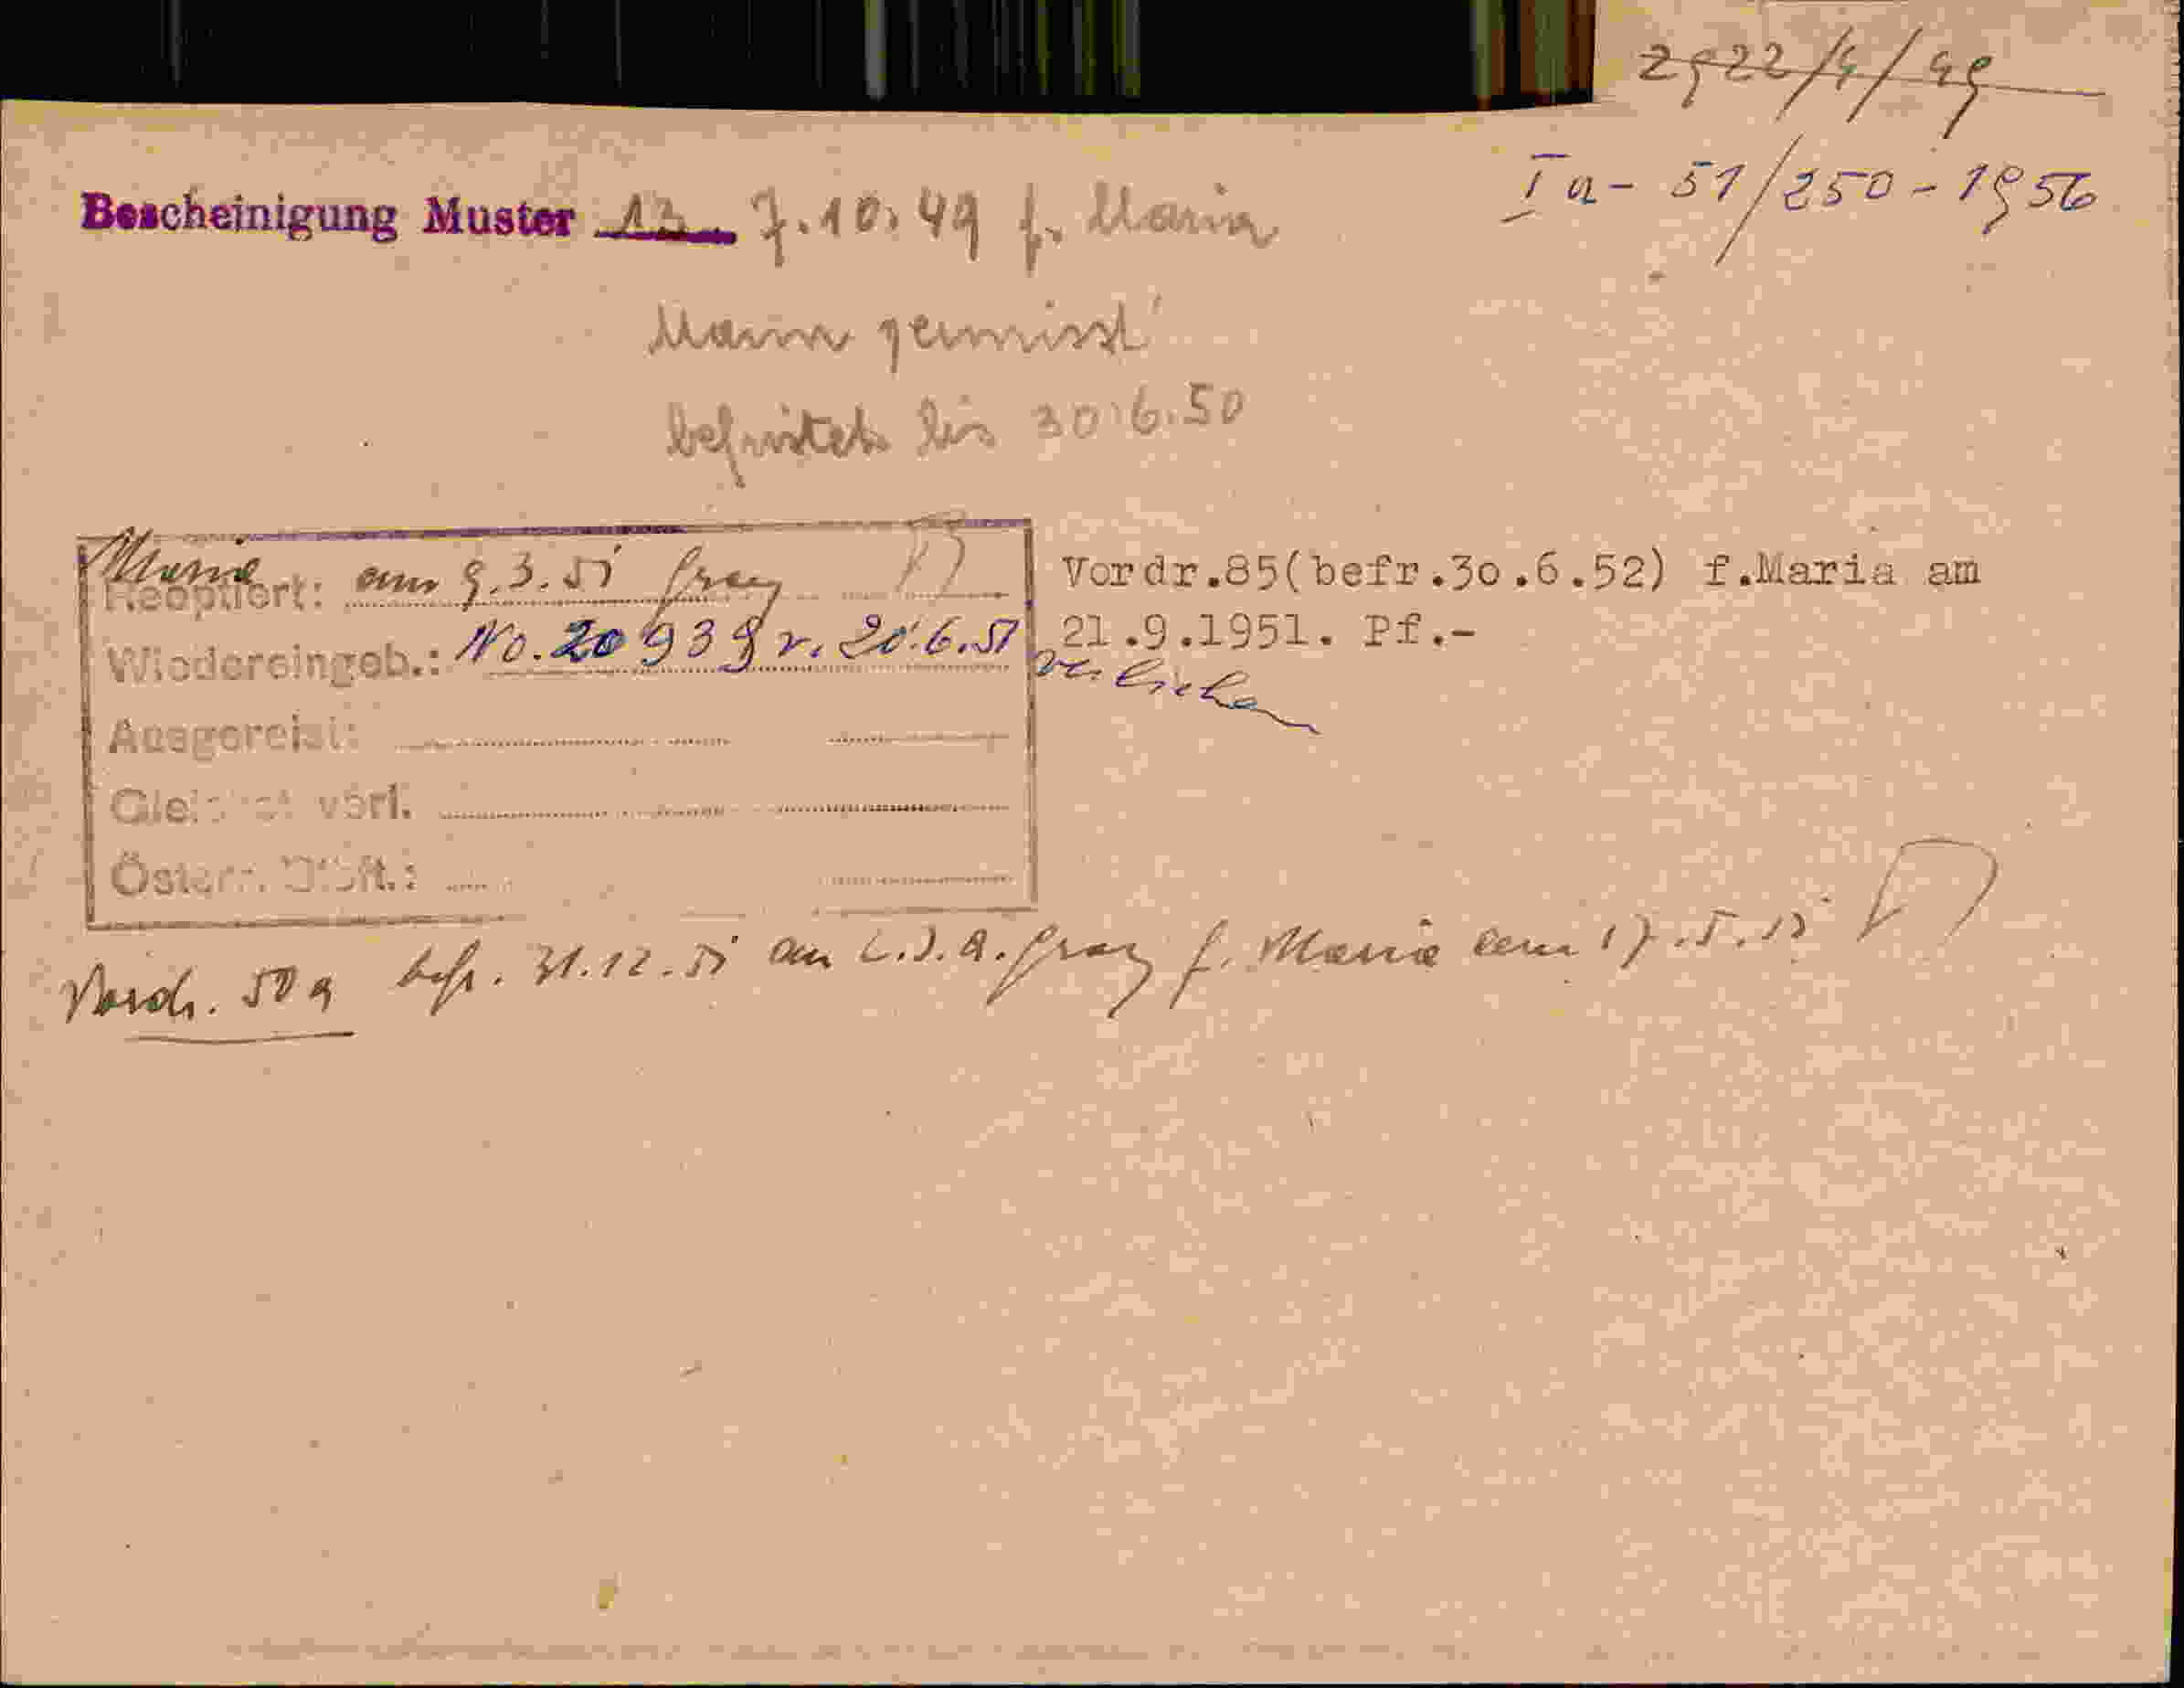 2922/4/49
Ia - 51/250 - 1956
Bescheinigung Muster 13 7.10.49 f. Maria
Mann vermisst
befristet bis 30.6.50
Maria
Reoptiert: am 9.3.51 Graz
Wiedereingeb.: No. 20 939 v. 20.6.51
verliehen
Ausgereist:
Gleichst verl.
Österr.
Vordr.85(befr.3o.6.52) f.Maria am
21.9.1951. Pf.-
50a befr. 31.12.51 an L.S.A. Graz f. Maria am 17.5.